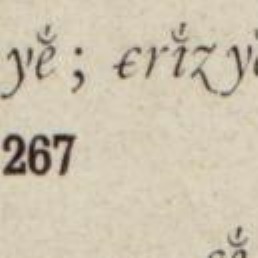 yĕ́; ɛrĭ́zyĕ
267